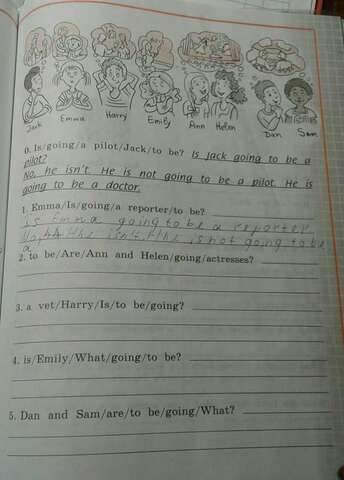 Jack Emma Harry Emily Ann Helen Dan Sam
0. Is/going/a pilot/Jack/to be? Is Jack going to be a
pilot?
No, he isn't. He is not going to be a pilot. He is
going to be a doctor.
1. Emma/Is/going/a reporter/to be?
is Emma going to be a reporter
isn't. she is not going to be
a
2. to be/Are/Ann and Helen/going/actresses?
3. a vet/Harry/Is/to be/going?
4. is/Emily/What/going/to be?
5. Dan and Sam/are/to be/going/What?